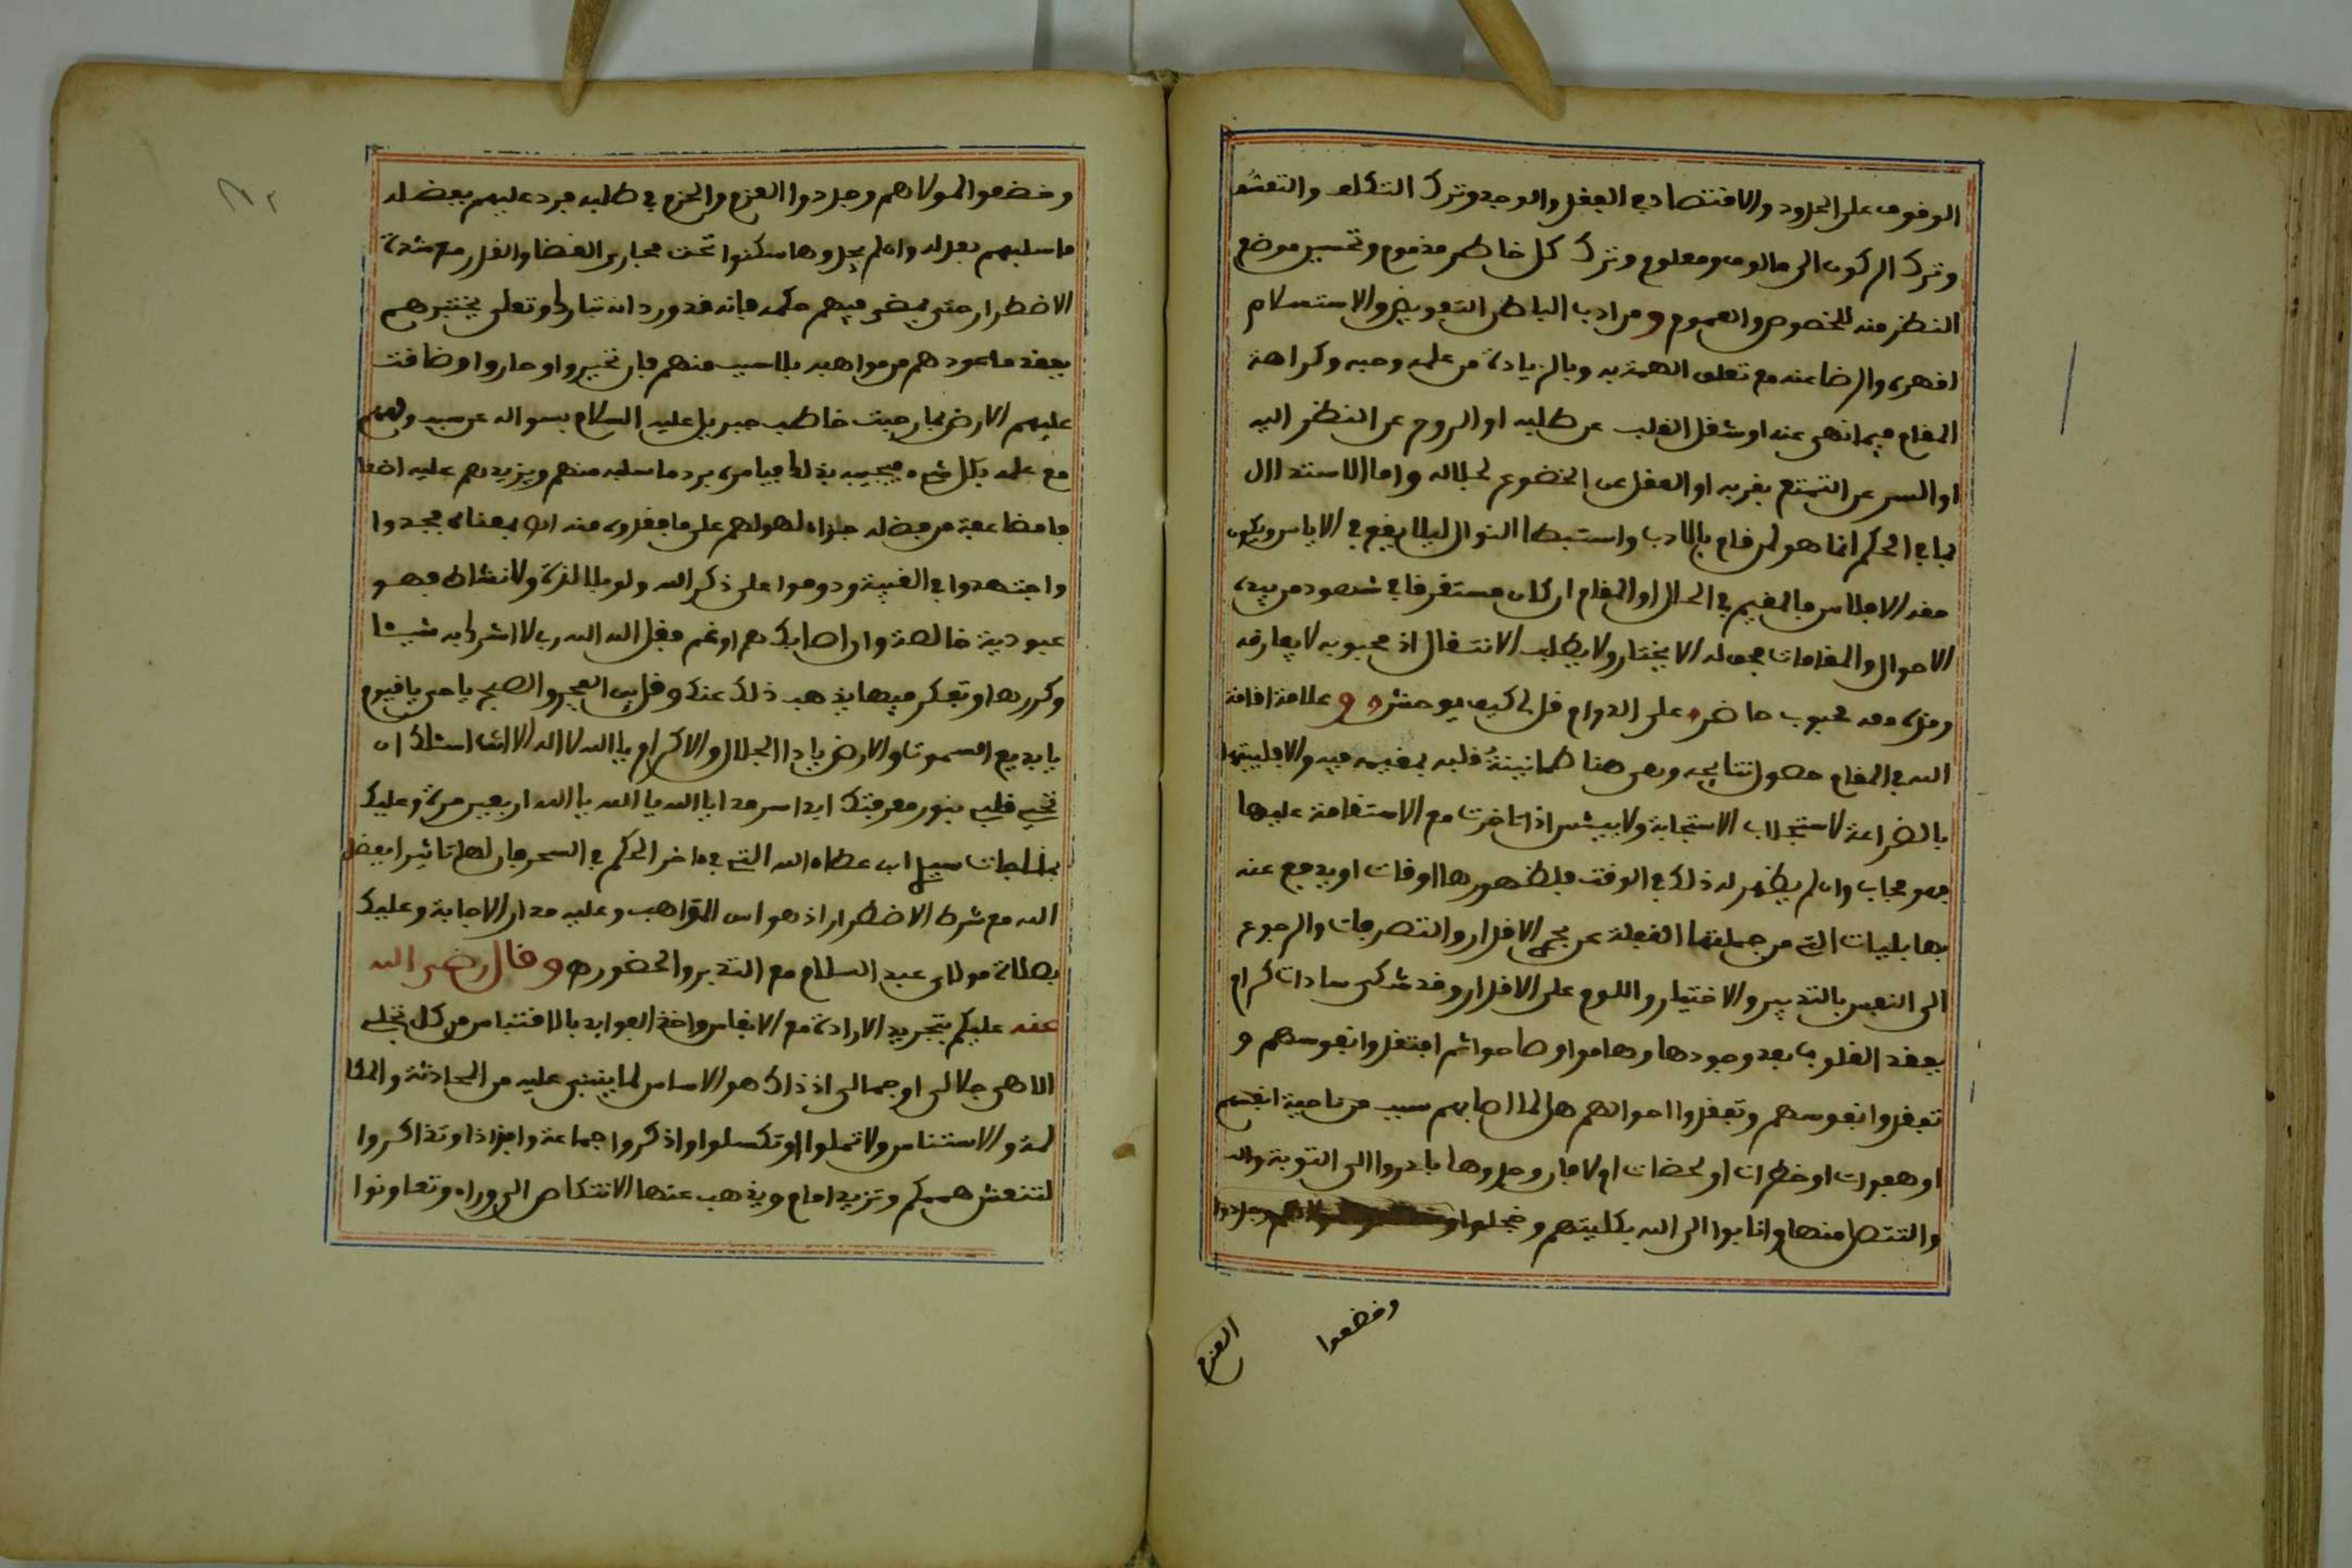 الوقوف على الحدود والاقتصاد في الفعل والوجد وترك التكلف والتعشق
وترك الركون الى مالوف ومعلوم وترك كل خاطر مذموم وتحسين موضع
النظر منه للخصوص والعموم ومن ادب الباطن التفويض والاستسلام
لقهره والرضا عنه مع تعلق الهمة به وبالزيادة من علمه وحبه وكراهة
المقام فيما نهى عنه او شغل القلب عن طلبه او الروح عن النظر اليه
او السر عن التمتع بقربه او العقل عن الخضوع لجلاله واما الاستدلال
بما في الحكم انما هو لمن قام بالادب واستبطا النوال ليلا يقع في الاياس ويكون
معه الافلاس فالمقيم في الحال او المقام ان كان مستغرقا في شهود مربيه
الاحوال والمقامات فحق له الا يختار ولا يطلب الانتقال اذ محبوبه لا يفارقه
ومن معه محبوب حاضر على الدوام قل لي كيف يوحش وعلامة اقامة
الله في المقام حصول نتايجه وهي هنا طمانينة قلبه بمقيمه فيه والا فليتهما
بالضراعة لاستجلاب الاستجابة ولا ييئس اذا تاخرت مع الاستقامة عليها
فهو مجاب وان لم يظهر له ذلك في الوقت فلظهورها اوقات او يدفع عنه
بها بليات التي من جملتها الغفلة عن مجرى الاقدار والتصرفات والرجوع
الى النفس بالتدبير والاختيار واللوم على الاقدار وقد شكى سادات كرام
بفقد القلوب بعد وجودها وهاموا وصاحوا ثم افتقدوا نفوسهم و
تفقدوا نفوسهم وتفقدوا احوالهم هل لما اصابهم سبب من ناحية انفسهم
او هفوات او خطرات او لحضات ام لا فان وجدوها بادروا الى التوبة والى
والتنصل منها وانابوا الى الله بكليتهم وخجلوا
وخضعوا
العزم
وخضعوا لمولاهم وجردوا العزم والحزم في طلبه فرد عليهم بفضله
ما سلبهم بعدله وان لم يجدوها سكنوا تحت مجاري القضا والقدر مع شدة
الاضطرار حتى يمضي فيهم حكمه فانه قد ورد انه تبارك وتعلى يختبرهم
بفقد ما عودهم من مواهبه بلا سبب منهم فان تحيروا او حاروا وضاقت
عليهم الارض بما رحبت خاطب جبريل عليه السلام بسواله عن سبب
مع علمه بكل شيء فيجيبه بذلك فيامره برد ما سلبه منهم ويزيدهم عليه اضعا
فا مضاعفة من فضله جزاء لهولهم على ما فقدوه منه انتهى بمعناه فجدوا
واجتهدوا في الغيبة ودوموا على ذكر الله ولو بلا لذة ولا نشاط فهو
عبودية خالصة وان اصابك هم او غم فقل الله الله رب لا اشرك به شيئا
وكررها وتفكر فيها يذهب ذلك عنك وقل بين الفجر والصبح يا حي يا قيوم
يا بديع السموت والارض يا ذا الجلال والاكرام يا الله لا اله الا انت اسئلك ان
تحي قلبي بنور معرفتك ابدا سرمدا يا الله يا الله يا الله اربعين مرة وعليك
بمناجات سيدي ابن عطاء الله التي في ءاخر الحكم في السحر فان لها تاثيرا بفضل
الله مع شرط الاضطرار اذ هو اس المواهب وعليه مدار الاجابة وعليك
بصلاة مولاي عبد السلام مع التدبر والحضور وقال رضي الله
عنه عليكم بتجريد الارادة مع الانفاس واخذ الفوايد بالاقتباس من كل تجلي
الاهي جلالي او جمالي اذ ذاك هو الاساس لما ينبني عليه من المحادثة والمكا
لمة والاستئناس ولا تملوا او تكسلوا واذكروا جماعة وافرادا وتذاكروا
لتنتعش هممكم وتزيد امام ويذهب عنها الانتكاص الى وراء وتعاونوا